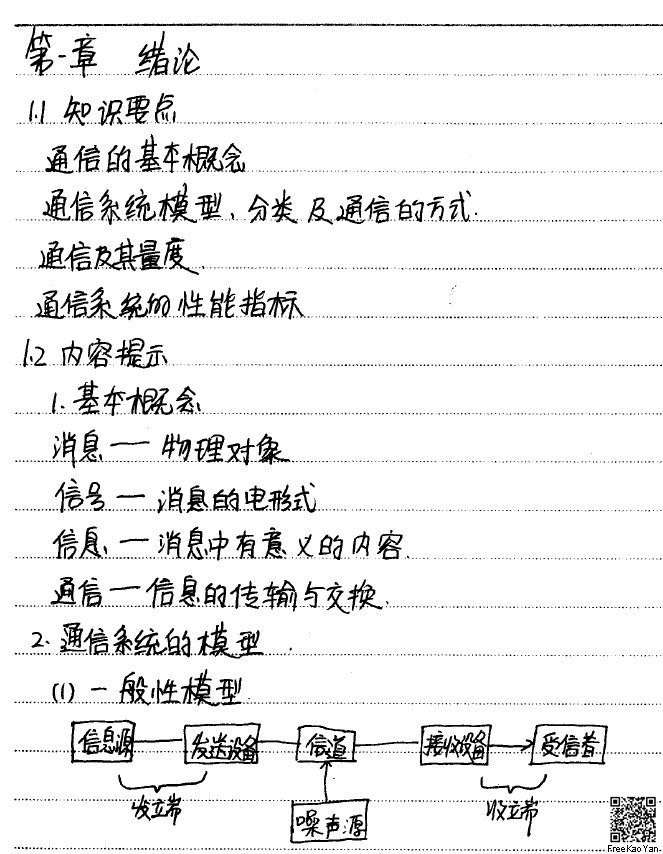 第一章 绪论
1.1 知识要点
通信的基本概念
通信系统模型、分类及通信的方式.
通信及其量度
通信系统的性能指标
1.2 内容提示
1. 基本概念
消息 — 物理对象
信号 — 消息的电形式
信息 — 消息中有意义的内容.
通信 — 信息的传输与交换.
2. 通信系统的模型.
(1) 一般性模型
信息源 发送设备 信道 接收设备 受信者
发立端 收立端
噪声源
FreeKaoYan